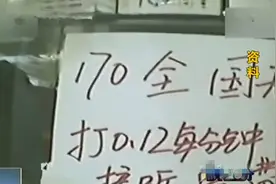 170全国
打0.12每分钟
接听
资料